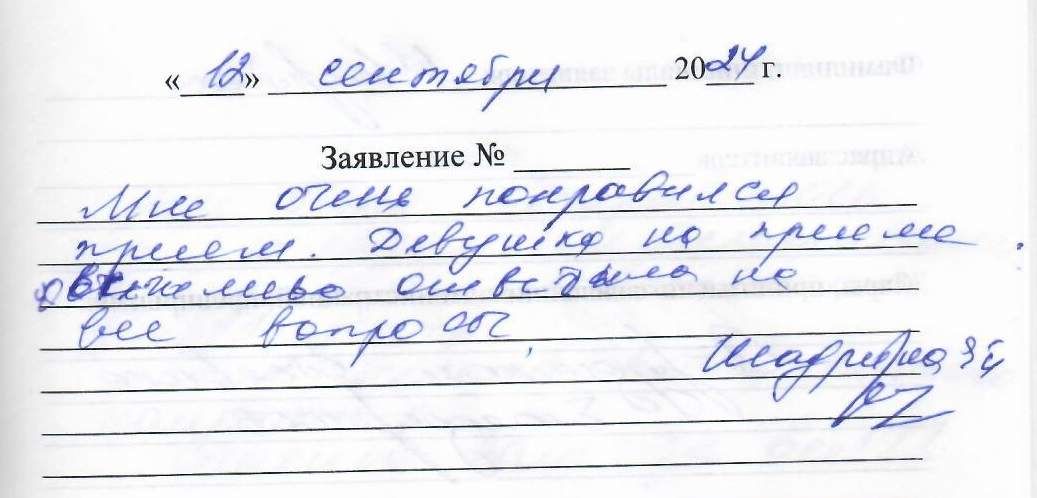 «12» сентября 2024 г.
Заявление №
Мне очень понравился
прием. Девушка на приеме
ответила на
все вопросы